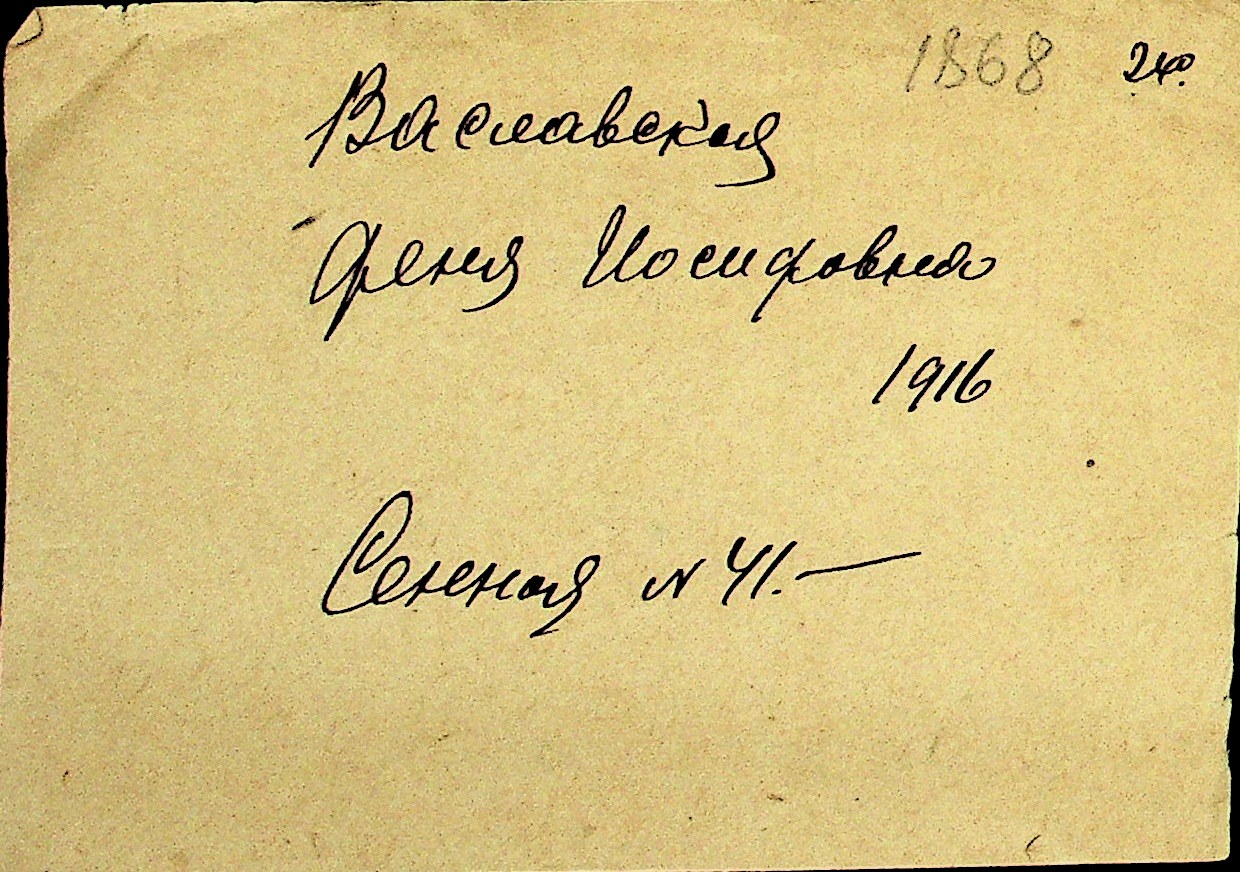 1868
Ваславская
Феня Иосифовна
1916
Сенная № 41.—